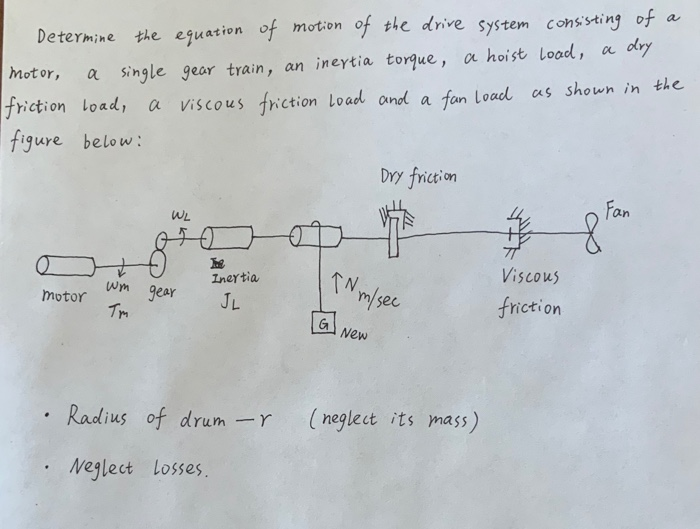 Determine the equation of motion of the drive system consisting of a
motor, a single gear train, an inertia torque, a hoist load, a dry
friction load, a viscous friction load and a fan load as shown in the
figure below:
Dry friction
Fan
WL
motor
Wm
Tm
gear
Inertia
JL
↑N m/sec
G New
Viscous
friction
• Radius of drum — r (neglect its mass)
• Neglect Losses.